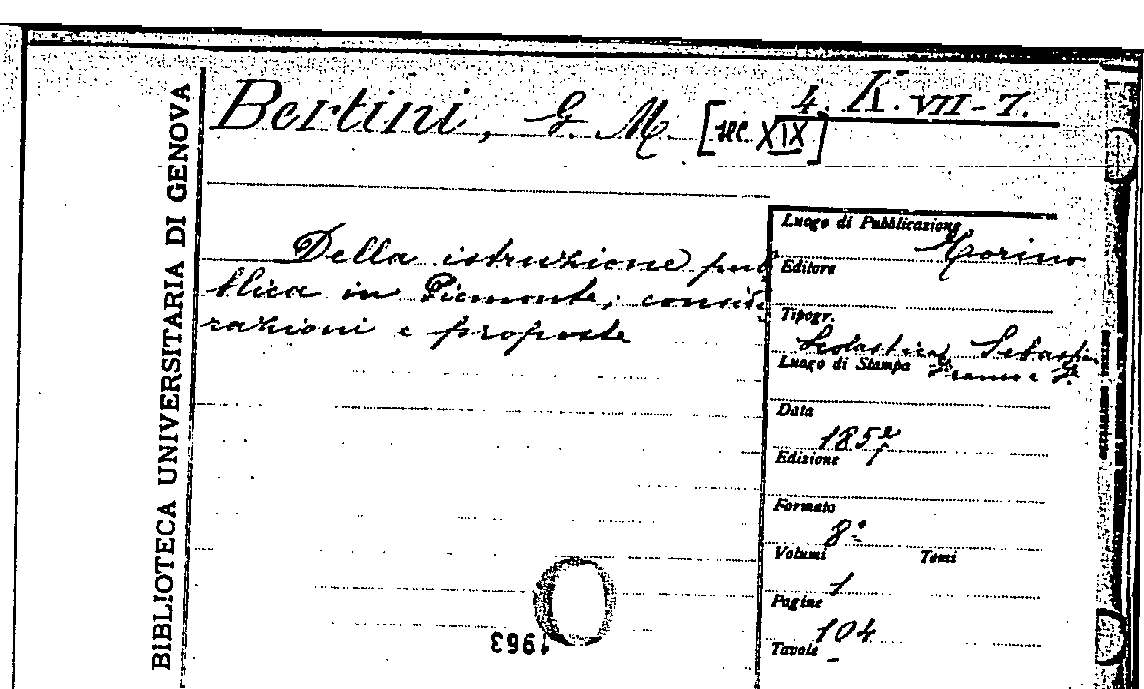 BIBLIOTECA UNIVERSITARIA DI GENOVA
4. K. VII - 7.
Bertini, G. M. [sec. XIX]
Della istruzione pub
blica in Piemonte; conside
razioni e proposte
Luogo di Pubblicazione
Torino
Editore
Tipogr.
Scolastica, Sebastian
Franco e F.
Luogo di Stampa
Data
1857
Edizione
Formato
8°
Volumi Tomi
1
Pagine
104
Tavole
1963